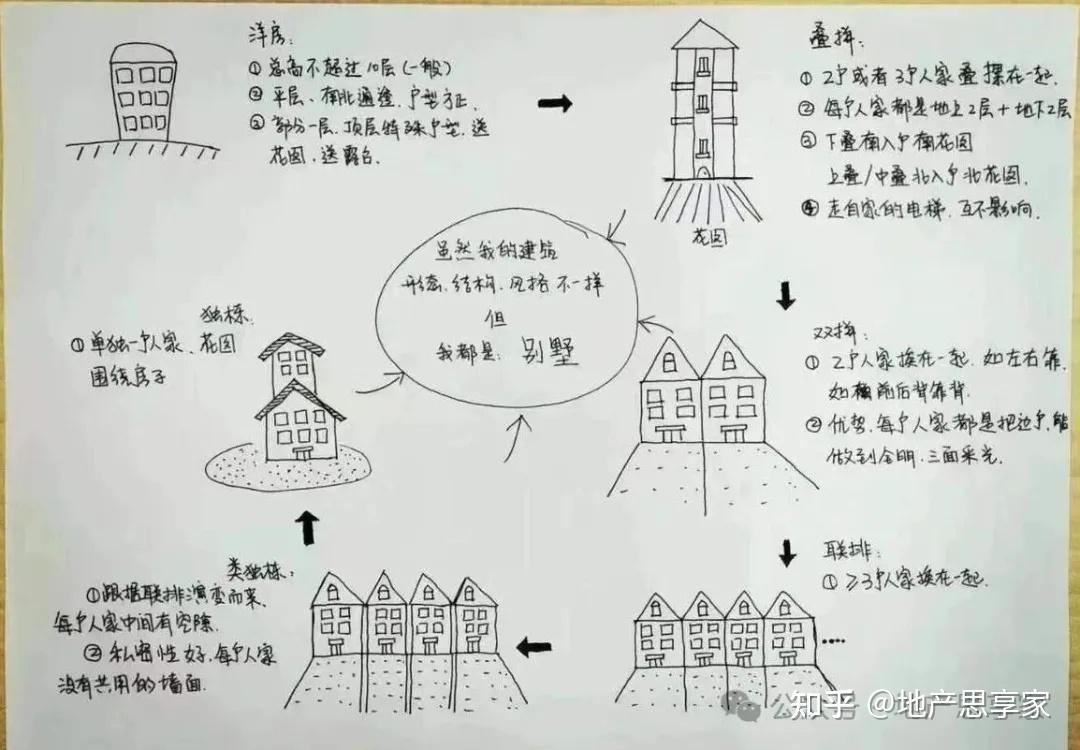 洋房:
① 总高不超过10层(一般)
② 平层、南北通透、户型方正.
③ 部分一层、顶层特殊户型,送
花园,送露台.
叠拼:
① 2户或者3户人家叠摞在一起.
② 每户人家都是地上2层+地下2层
③ 下叠南入户南花园
上叠/中叠北入户北花园.
④ 走自家的电梯,互不影响.
花园
虽然我的建筑
形态、结构、风格不一样
但
我都是: 别墅
双拼:
① 2户人家挨在一起.如左右靠,
如 前后背靠背.
② 优势,每户人家都是把边户,能
做到全明,三面采光.
联排:
① ≥3户人家挨在一起.
类独栋:
①跟据联排演变而来,
每户人家中间有空隙.
② 私密性好,每户人家
没有共用的墙面.
独栋.
① 单独一户人家、花园
围绕房子
公众号
知乎 @地产思享家